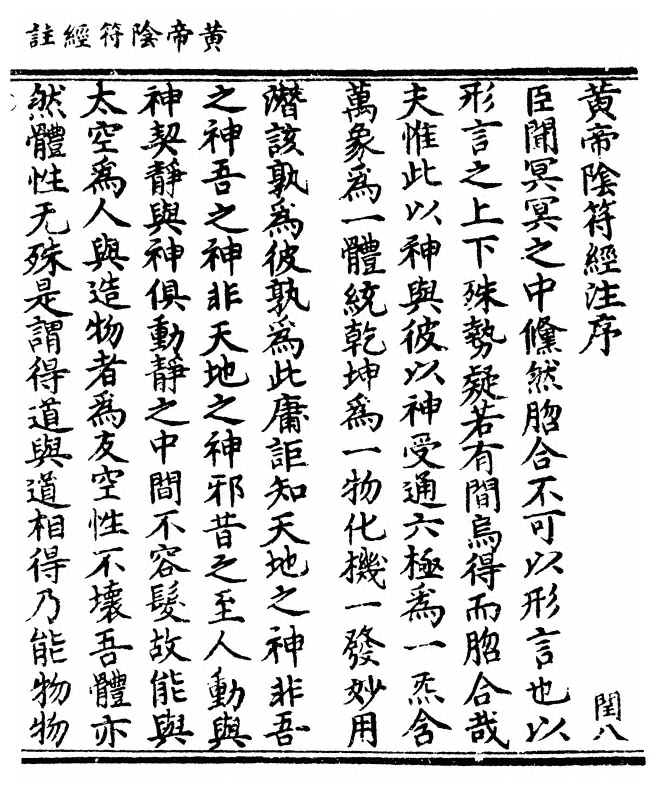 黃帝陰符經註
黃帝陰符經注序
閏八
臣聞冥冥之中儻然脗合不可以形言也以
形言之上下殊勢疑若有間烏得而脗合哉
夫惟此以神與彼以神受通六極爲一炁含
萬象爲一體統乾坤爲一物化機一發妙用
潛該孰爲彼孰爲此庸詎知天地之神非吾
之神吾之神非天地之神邪昔之至人動與
神契靜與神俱動靜之中間不容髮故能與
太空爲人與造物者爲友空性不壞吾體亦
然體性无殊是謂得道與道相得乃能物物